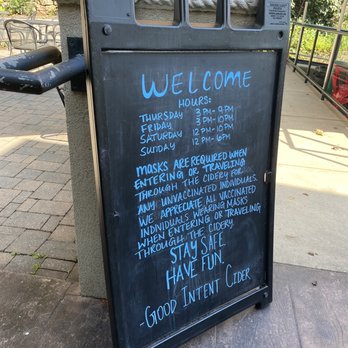 WELCOME
HOURS:
THURSDAY 3PM-9PM
FRIDAY 3PM-10PM
SATURDAY 12PM-10PM
SUNDAY 12PM-6PM
MASKS ARE REQUIRED WHEN
ENTERING OR TRAVELING
THROUGH THE CIDERY FOR
ANY UNVACCINATED INDIVIDUALS.
WE APPRECIATE ALL VACCINATED
INDIVIDUALS WEARING MASKS
WHEN ENTERING OR TRAVELING
THROUGH THE CIDERY.
STAY SAFE.
HAVE FUN.
-GOOD INTENT CIDER